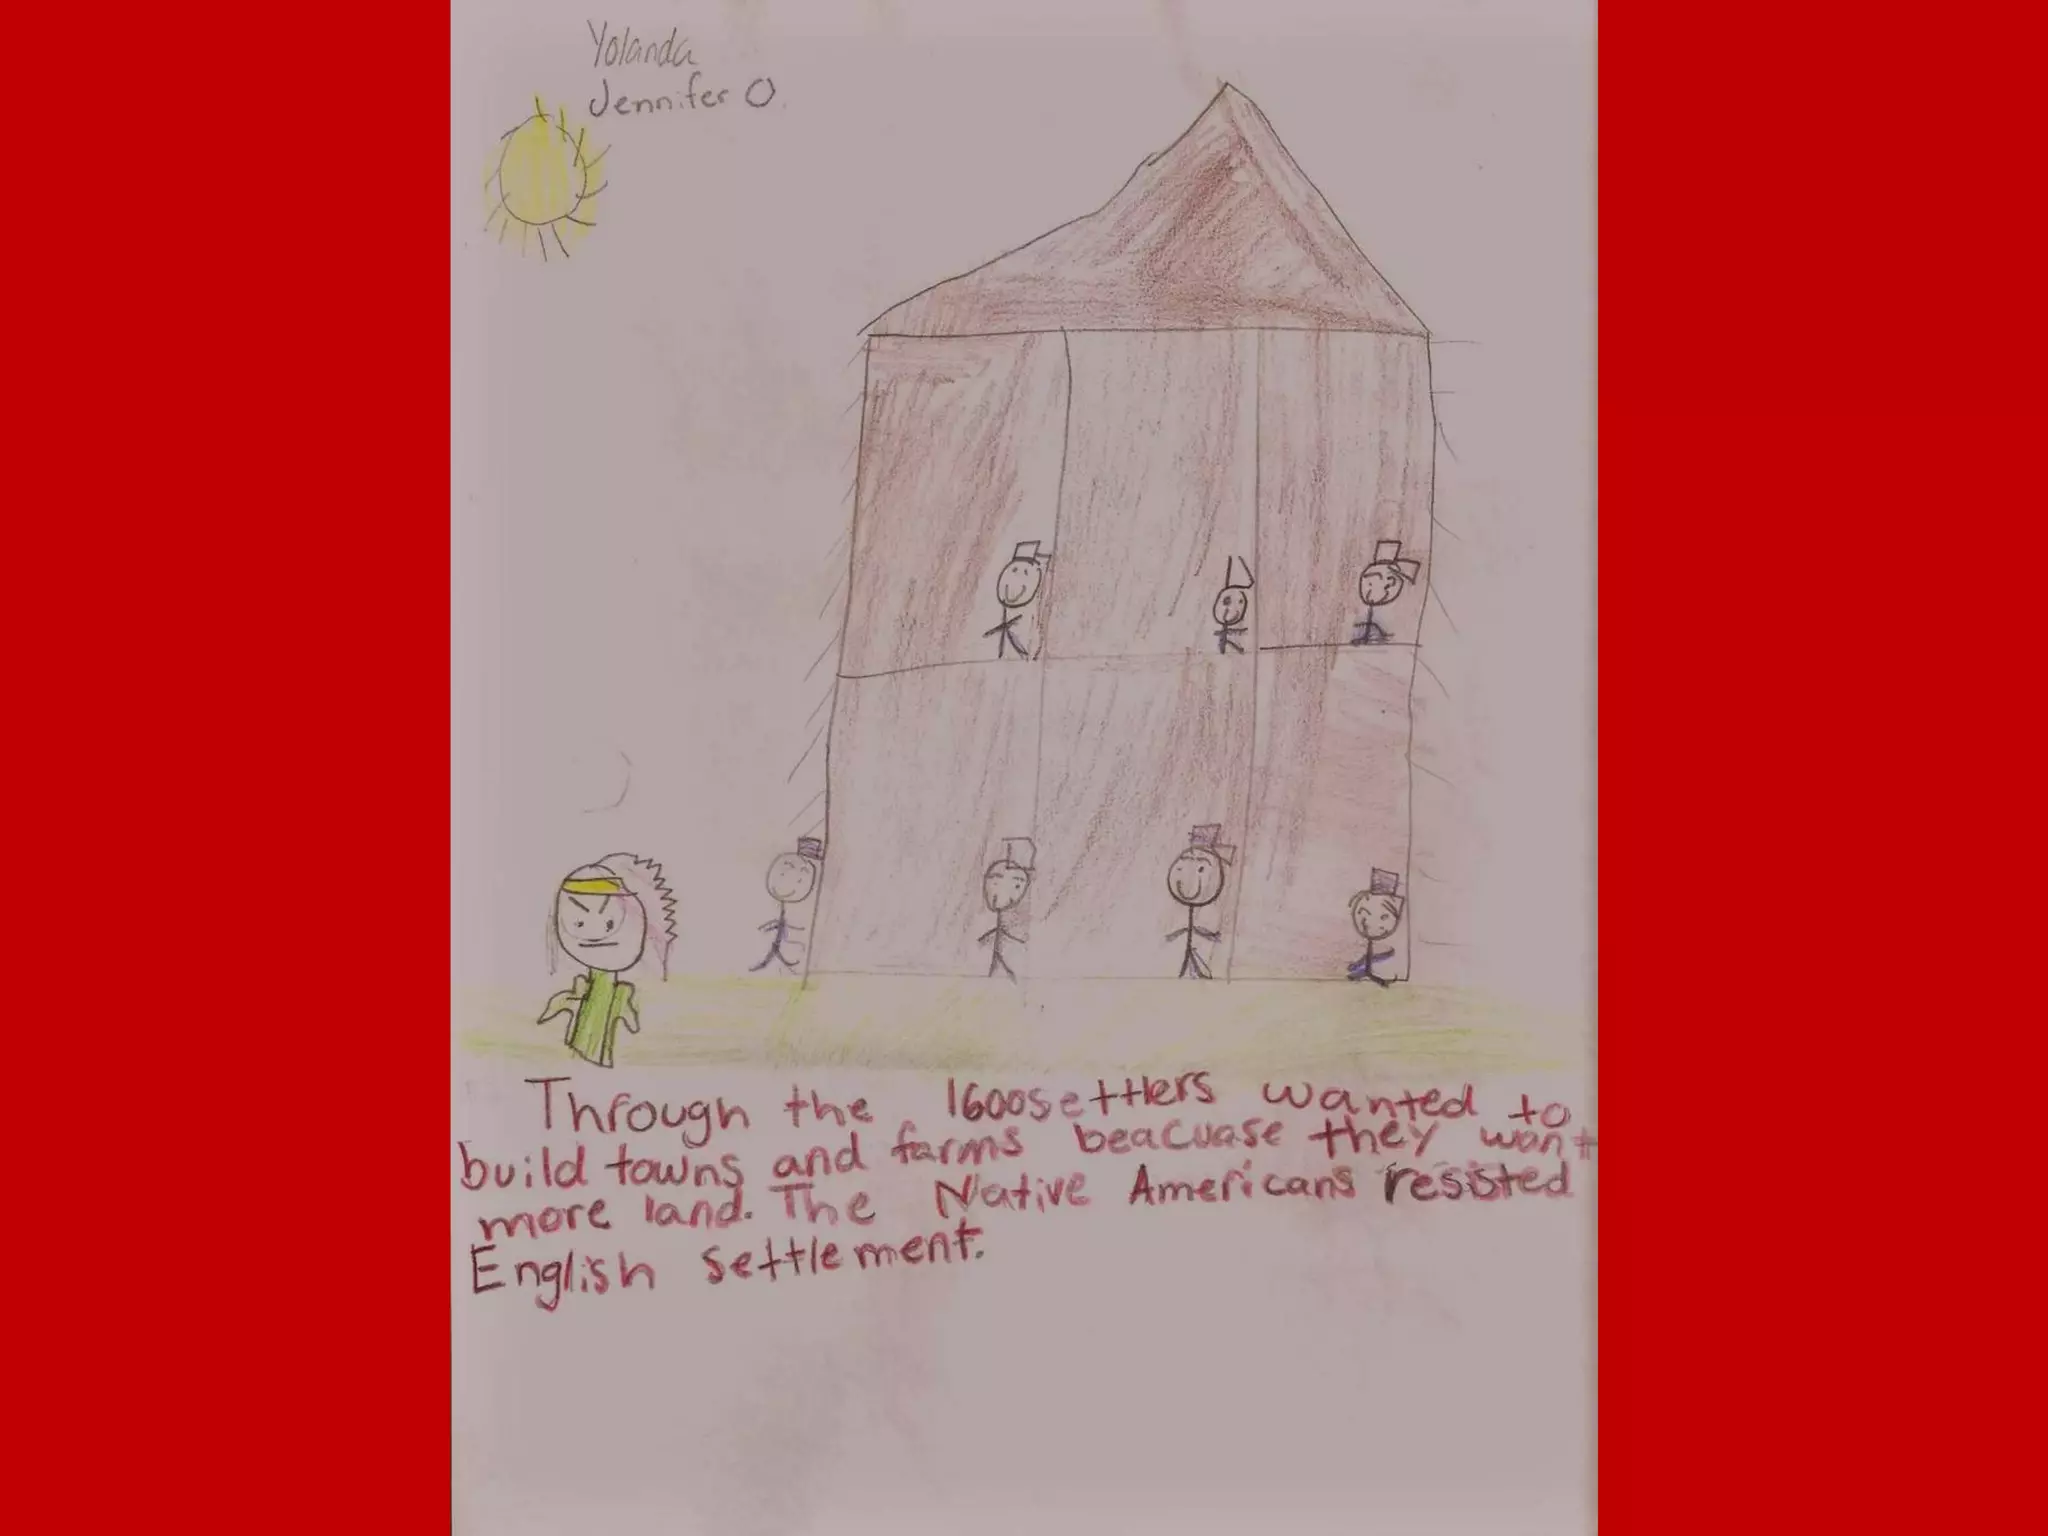 Yolanda
Jennifer O.
Through the 1600s settlers wanted to
build towns and farms beacuase they want
more land. The Native Americans resisted
English settlement.